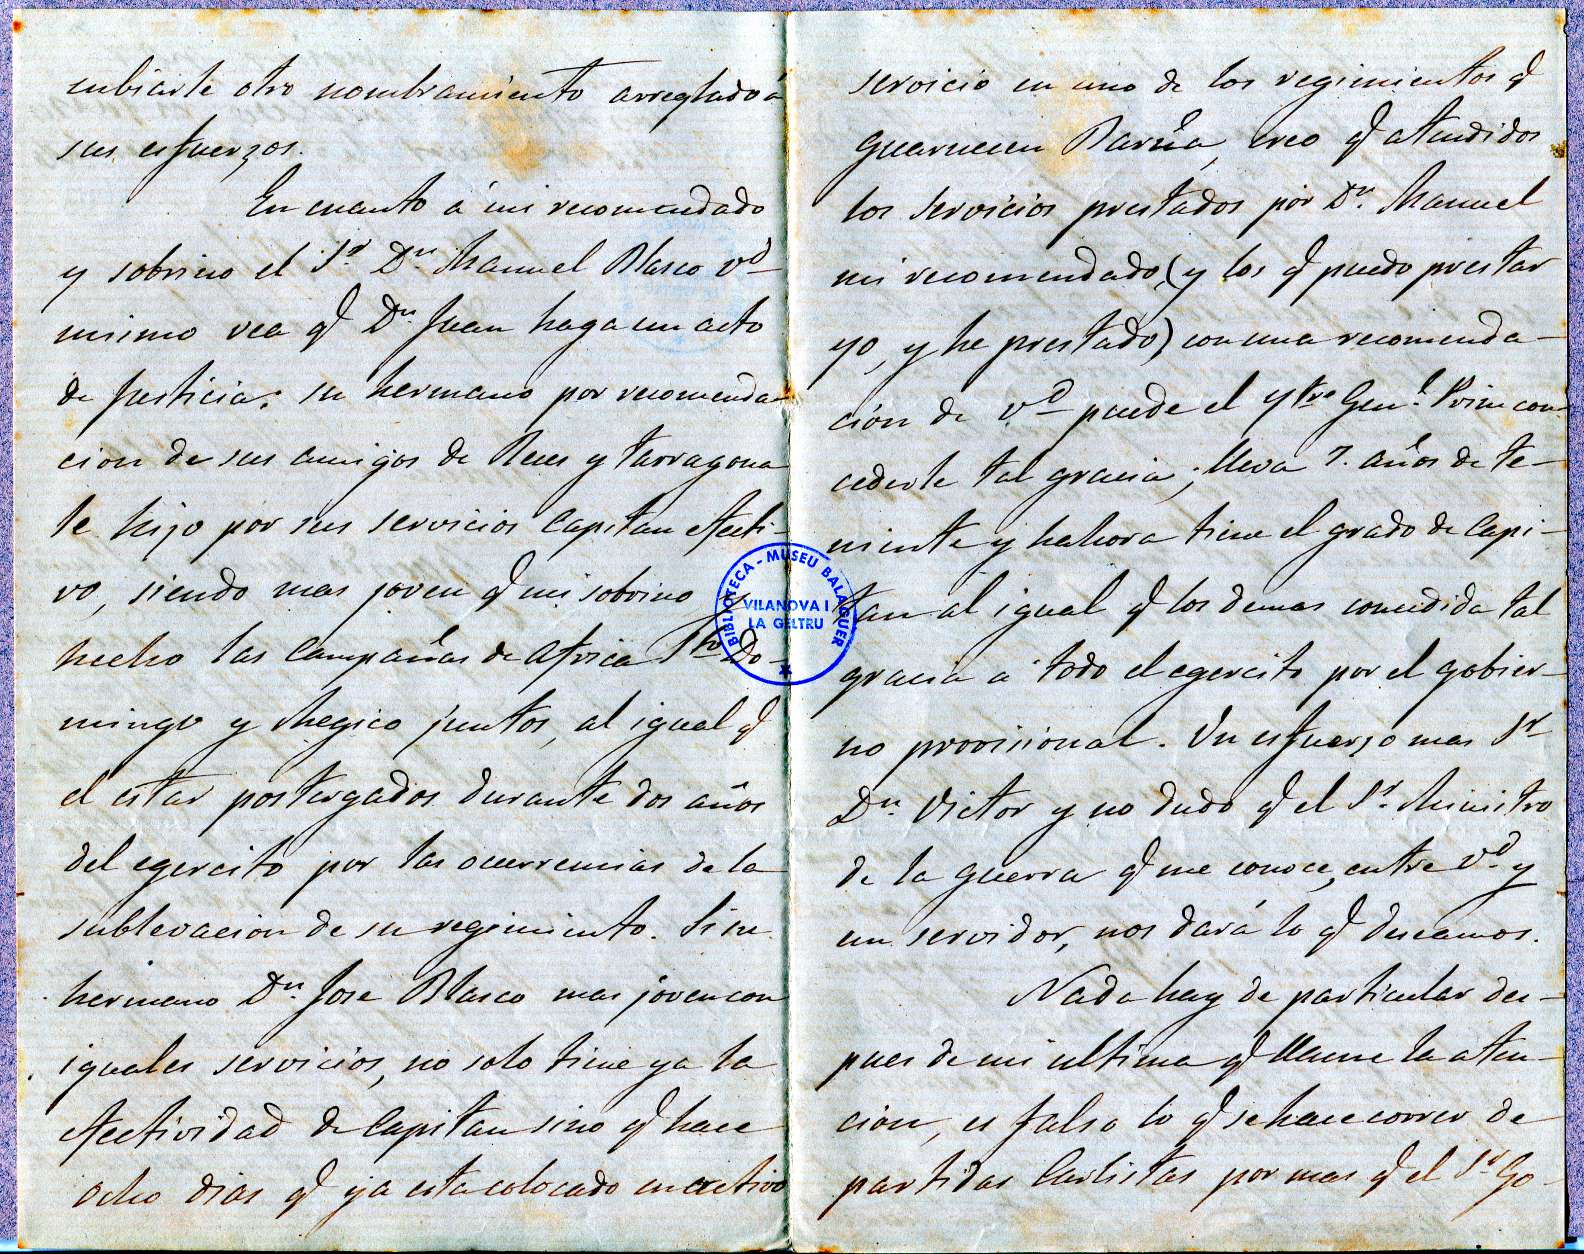 embiarle otro nombramiento arreglado á
sus esfuerzos.
En cuanto á mi recomendado
y sobrino el Sr. Dn. Manuel Blasco Vd
mismo vea q Dn. Juan haga un acto
de justicia: su hermano por recomenda-
cion de sus amigos de Reus y Tarragona
le hizo por sus servicios Capitan efecti-
vo, siendo mas joven q mi sobrino y
hecho las Campañas de Africa Sto Do-
mingo y Megico juntos, al igual q
el estar postergados durante dos años
del egercito por las ocurrencias de la
sublevacion de su regimiento. Si su
hermano Dn. Jose Blasco mas joven con
iguales servicios, no solo tiene ya la
efectividad de Capitan sino q hace
ocho dias q ya esta colocado en activo
servicio en uno de los regimientos q
guarnecen Barna, creo q atendidos
los servicios prestados por Dn. Manuel
mi recomendado, (y los q puedo prestar
yo, y he prestado) con una recomenda-
ción de Vd puede el Ytre Genl. Prim con-
cederle tal gracia; lleva 7. años de te-
niente y hahora tiene el grado de Capi-
tan al igual q los demas concedida tal
gracia á todo el egercito por el gobier-
no provisional. Un esfuerzo mas Sr
Dn. Victor y no dudo q el Sr. Ministro
de la guerra q me conoce, entre Vd. y
un servidor, nos dará lo q deseamos.
Nada hay de particular des-
pues de mi ultima q llame la aten-
cion, es falso lo q se hace correr de
partidas Carlistas por mas q el Sr. Go-
BIBLIOTECA - MUSEU BALAGUER
VILANOVA I
LA GELTRU